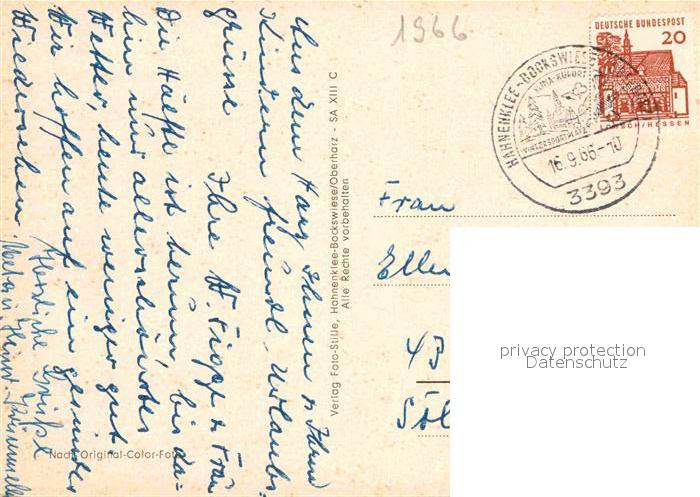 1966
DEUTSCHE BUNDESPOST
20
LORSCH/HESSEN
HAHNENKLEE-BOCKSWIESE
KLIMA-KURORT
WINTERSPORTPLATZ
16.9.66-10
3393
Aus dem Harz Ihnen u Ihren
Kindern freundl. Urlaubs-
grüsse Ihre W. u Frau
Die Hälfte ist herum, bis da-
hin nur allerschönstes
Wetter, heute weniger gut
Wir hoffen auf ein gesundes
Wiedersehen.
Herzliche Grüße
Verlag Foto-Stille, Hahnenklee-Bockswiese/Oberharz - SA XIII C
Alle Rechte vorbehalten
Nach Original-Color-Foto
Frau
Elle
43
privacy protection
Datenschutz